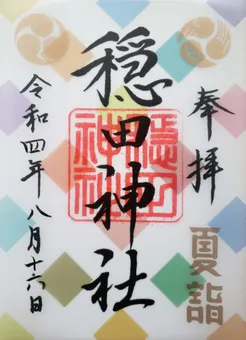 奉拝
夏詣
穏田神社
穏田
神社
令和四年八月十六日